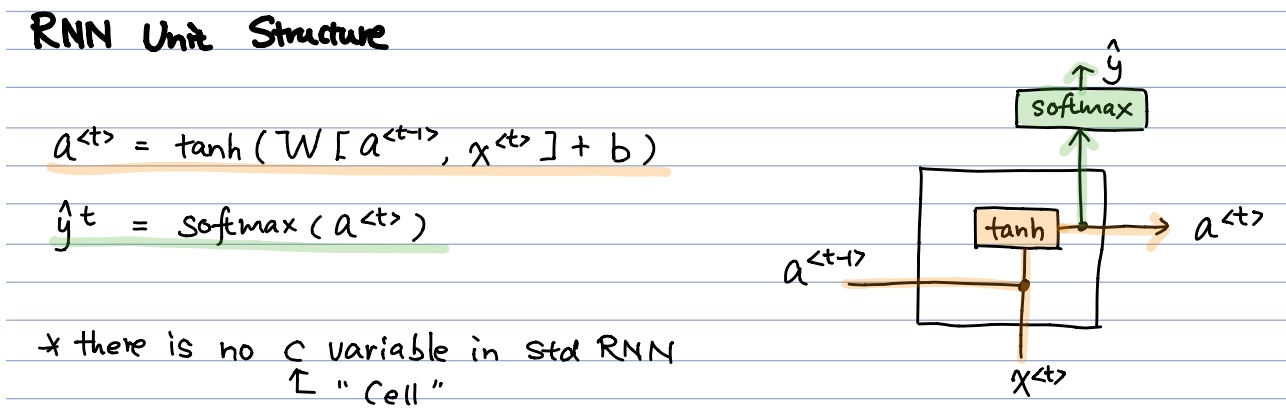 RNN Unit Structure
a<t> = tanh ( W [ a<t-1>, x<t> ] + b )
ŷ t = softmax ( a<t> )
* there is no C variable in std RNN
↑ "Cell"
ŷ
softmax
tanh
a<t>
a<t-1>
x<t>